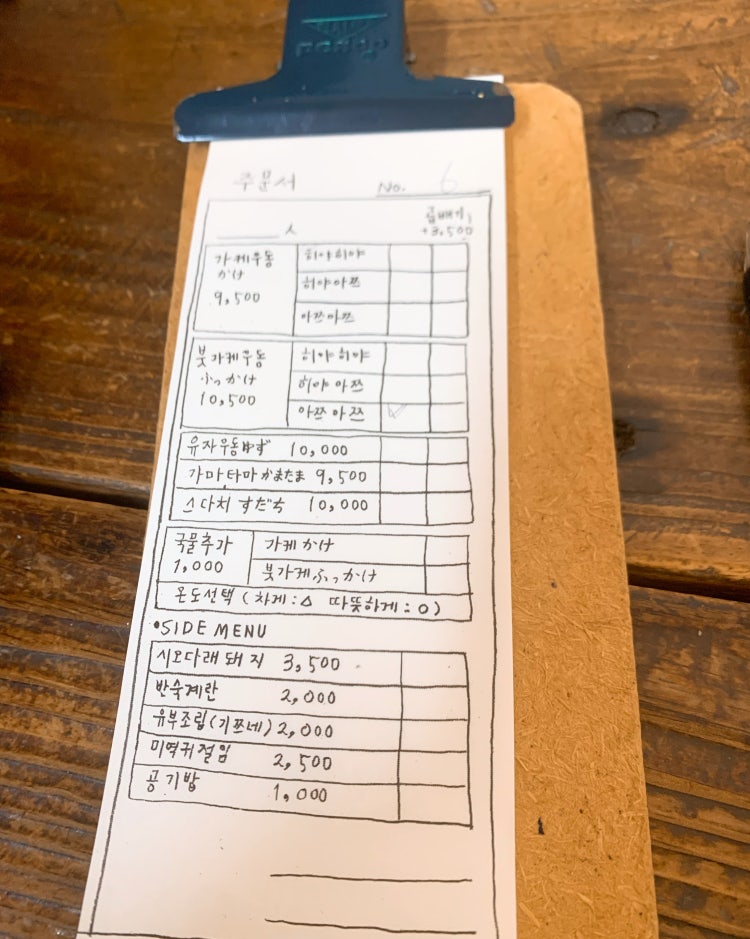 주문서 No. 6
인 곱빼기
+3,500
가케우동 히야히야
かけ 히야아쯔
9,500 아쯔아쯔
붓가케우동 히야히야
ぶっかけ 히야 아쯔
10,500 아쯔 아쯔
유자우동 ゆず 10,000
가마타마 かまたま 9,500
스다치 すだち 10,000
국물추가 가케 かけ
1,000 붓가케 ぶっかけ
온도선택 (차게:△ 따뜻하게:O)
•SIDE MENU
시오다래 돼지 3,500
반숙계란 2,000
유부조림(기쯔네) 2,000
미역귀절임 2,500
공기밥 1,000